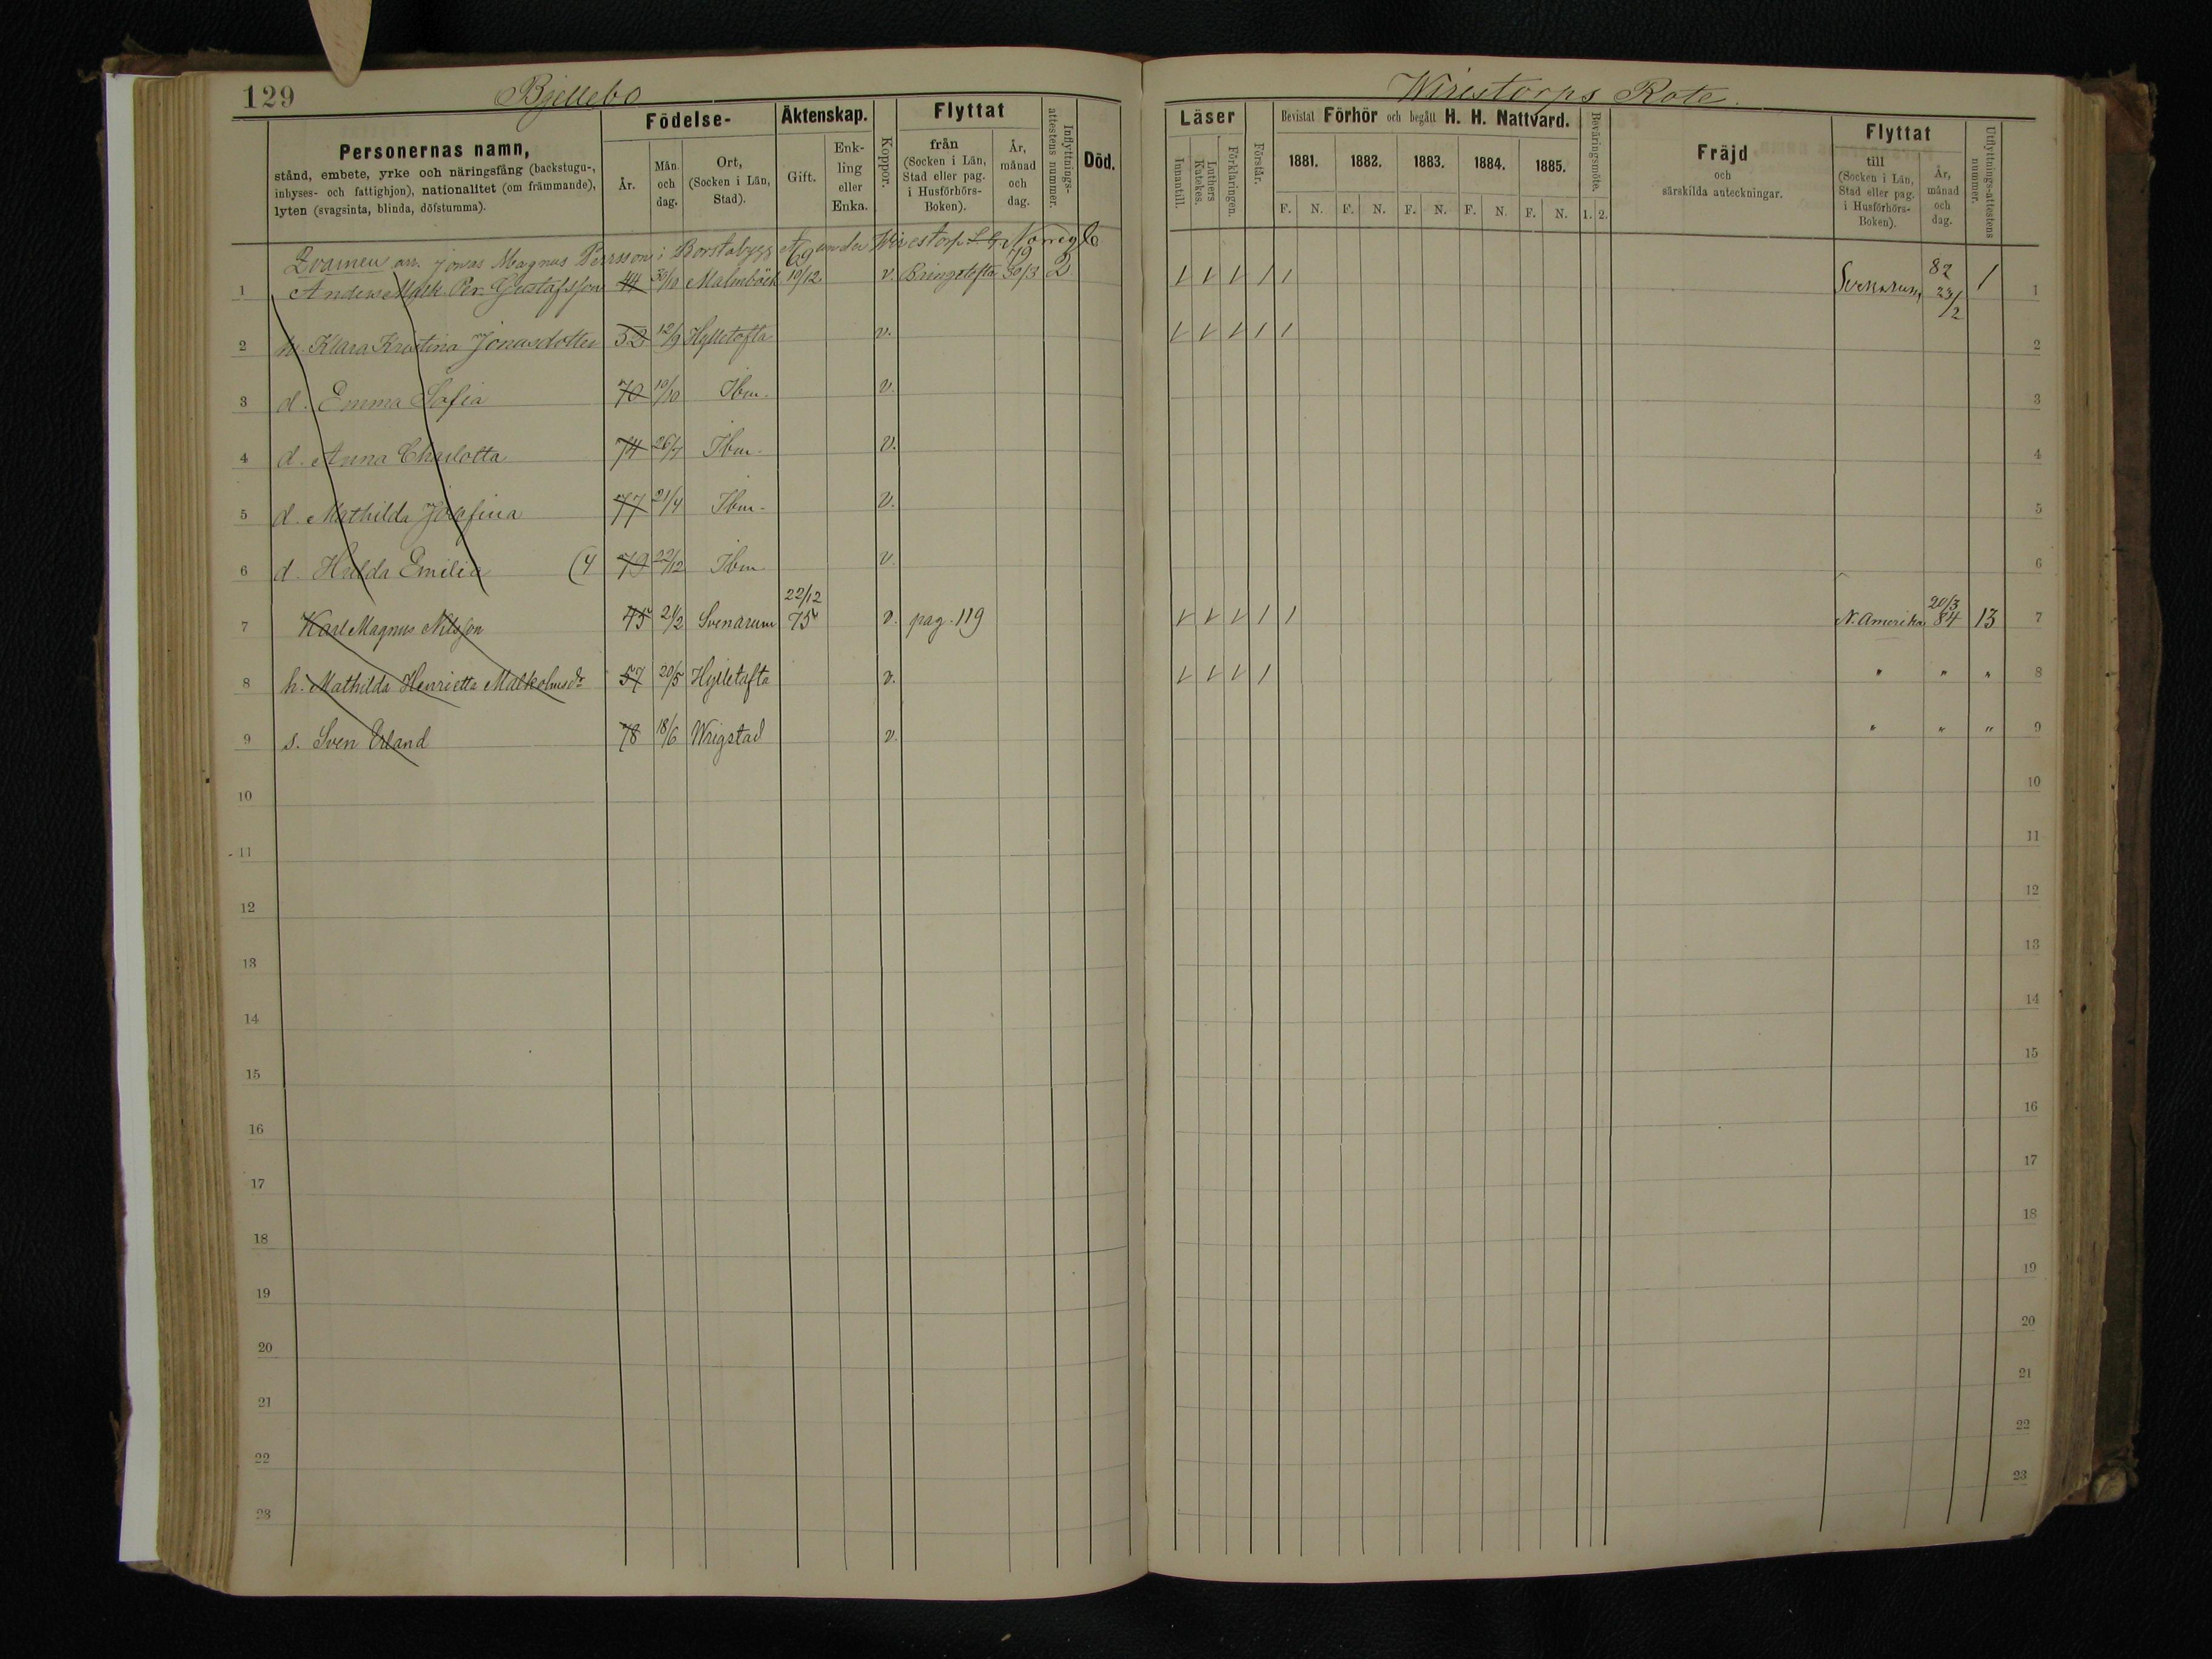 129 Bjellebo
Personernas namn,
stånd, embete, yrke och näringsfång (backstugu-,
inhyses- och fattighjon), nationalitet (om främmande),
lyten (svagsinta, blinda, döfstumma).
Födelse-
År.
Mån. och dag.
Ort, (Socken i Län, Stad).
Äktenskap.
Gift.
Enkling eller Enka.
Koppor.
Flyttat
från (Socken i Län, Stad eller pag. i Husförhörs-Boken).
År, månad och dag.
Inflyttnings-attestens nummer.
Död.
arr. Jonas Magnus Persson i under Wirestorp
1 Anders Per Gustafsson 44 30/10 Malmbäck 69 19/12 v. Bringetofta 79 30/3 2
2 h. Klara Kristina Jonasdotter 52 12/9 Hylletofta v.
3 d. Emma Sofia 70 10/10 Ibm. v.
4 d. Anna Charlotta 74 26/7 Ibm. v.
5 d. Mathilda Josefina 77 21/4 Ibm. v.
6 d. Hulda Emilia (4 79 22/12 Ibm v.
7 Karl Magnus Nilsson 45 21/2 Svenarum 22/12 75 v. pag. 119
8 h. Mathilda Henrietta Malkolmsdr 57 20/5 Hylletofta v.
9 s. Sven Erland 78 18/6 Wrigstad v.
10
11
12
13
14
15
16
17
18
19
20
21
22
23
Wirestorps Rote.
Läser
Innantill.
Luthers Katekes.
Förklaringen.
Förstår.
Bevistat Förhör och begått H. H. Nattvard.
1881. 1882. 1883. 1884. 1885.
F. N. F. N. F. N. F. N. F. N.
Beväringsmöte.
1. 2.
Fräjd
och
särskilda anteckningar.
Flyttat
till (Socken i Län, Stad eller pag. i Husförhörs-Boken).
År, månad och dag.
Utflyttnings-attestens nummer.
Svenarum 82 23/2 1 1
2
3
4
5
6
N. Amerika 20/3 84 13 7
" " " 8
" " " 9
10
11
12
13
14
15
16
17
18
19
20
21
22
23